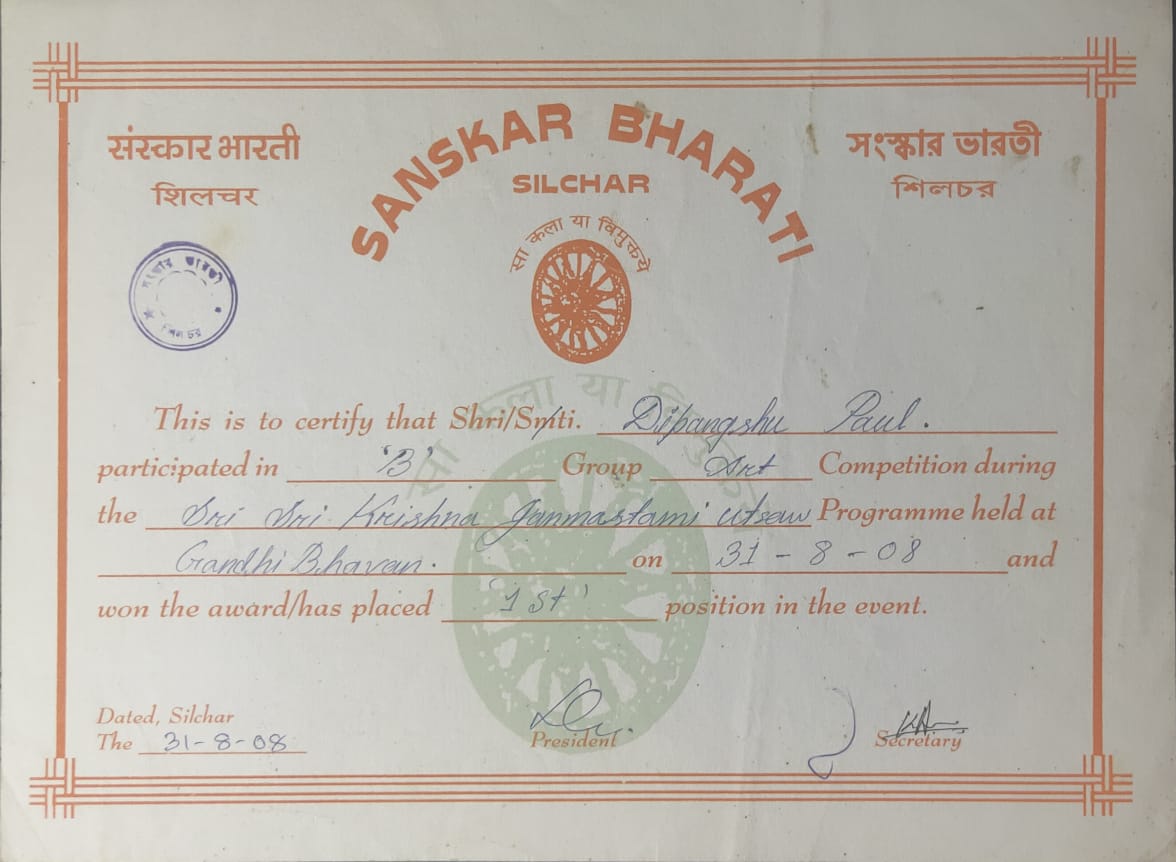 SANSKAR BHARATI
SILCHAR
संस्कार भारती
शिलचर
সংস্কার ভারতী
শিলচর
सा कला या विमुक्तये
সংস্কার ভারতী
শিলচর
सा कला या विमुक्तये
This is to certify that Shri/Smti. Dipangshu Paul.
participated in 'B' Group Art Competition during
the Sri Sri Krishna Janmastami utsav Programme held at
Gandhi Bhavan. on 31-8-08 and
won the award/has placed '1st' position in the event.
Dated, Silchar
The 31-8-08
President
Secretary